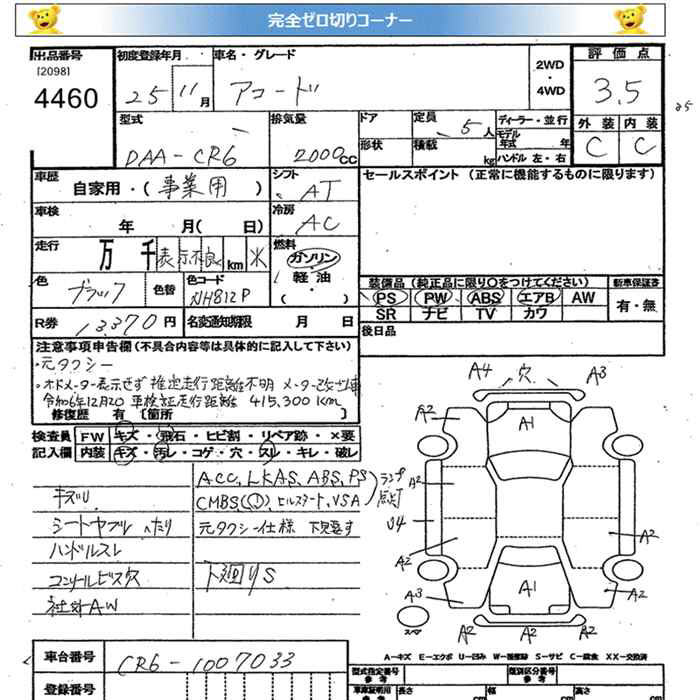 完全ゼロ切りコーナー
出品番号
[2098]
4460
初度登録年月
25 11月
車名・グレード
アコード
2WD
・
4WD
評価点
3.5
外装 内装
C C
型式
DAA-CR6
排気量
2000cc
ドア
形状
定員
5人
積載
kg
ディーラー・並行
モデル
年式 年
ハンドル 左・右
車歴
自家用・(事業用)
シフト
AT
車検
年 月( 日)
冷房
AC
走行
万 千 表示不良 km 米
燃料
ガソリン
・
軽油
・
( )
色
ブラック
色替
色コード
NH812P
R券 13370円
名変通知期限 月 日
セールスポイント (正常に機能するものに限ります)
装備品 (純正品に限り○をつけてください)
PS PW ABS エアB AW
SR ナビ TV カワ
新車保証書
有・無
後日品
注意事項申告欄(不具合内容等は具体的に記入して下さい)
・元タクシー
・オドメーター表示せず 推定走行距離不明 メーター改ざん車
令和6年12月20 車検証走行距離 415,300Km
修復歴 有 [箇所 ]
検査員 FW キズ・飛石・ヒビ割・リペア跡・×要
記入欄 内装 キズ・汚レ・コゲ・穴・スレ・キレ・破レ
キズU
シートヤブレ ヘタリ
ハンドルスレ
コンソールビス穴
社外AW
ACC, LKAS, ABS, PS
CMBS, (!), ヒルスタート, VSA
ランプ点灯
元タクシー仕様
下廻りS
A4 穴 A3
A2 A1
A2
U4
A2 A2
A3 A1 A2
A2 A2 A2
スペア
A－キズ E－エクボ U－凹ミ W－補修跡 S－サビ C－腐食 XX－交換済
車台番号
CR6-1007033
登録番号
型式指定番号
参考
類別区分番号
参考
車庫証明用
参考
長さ cm
幅 cm
高さ cm